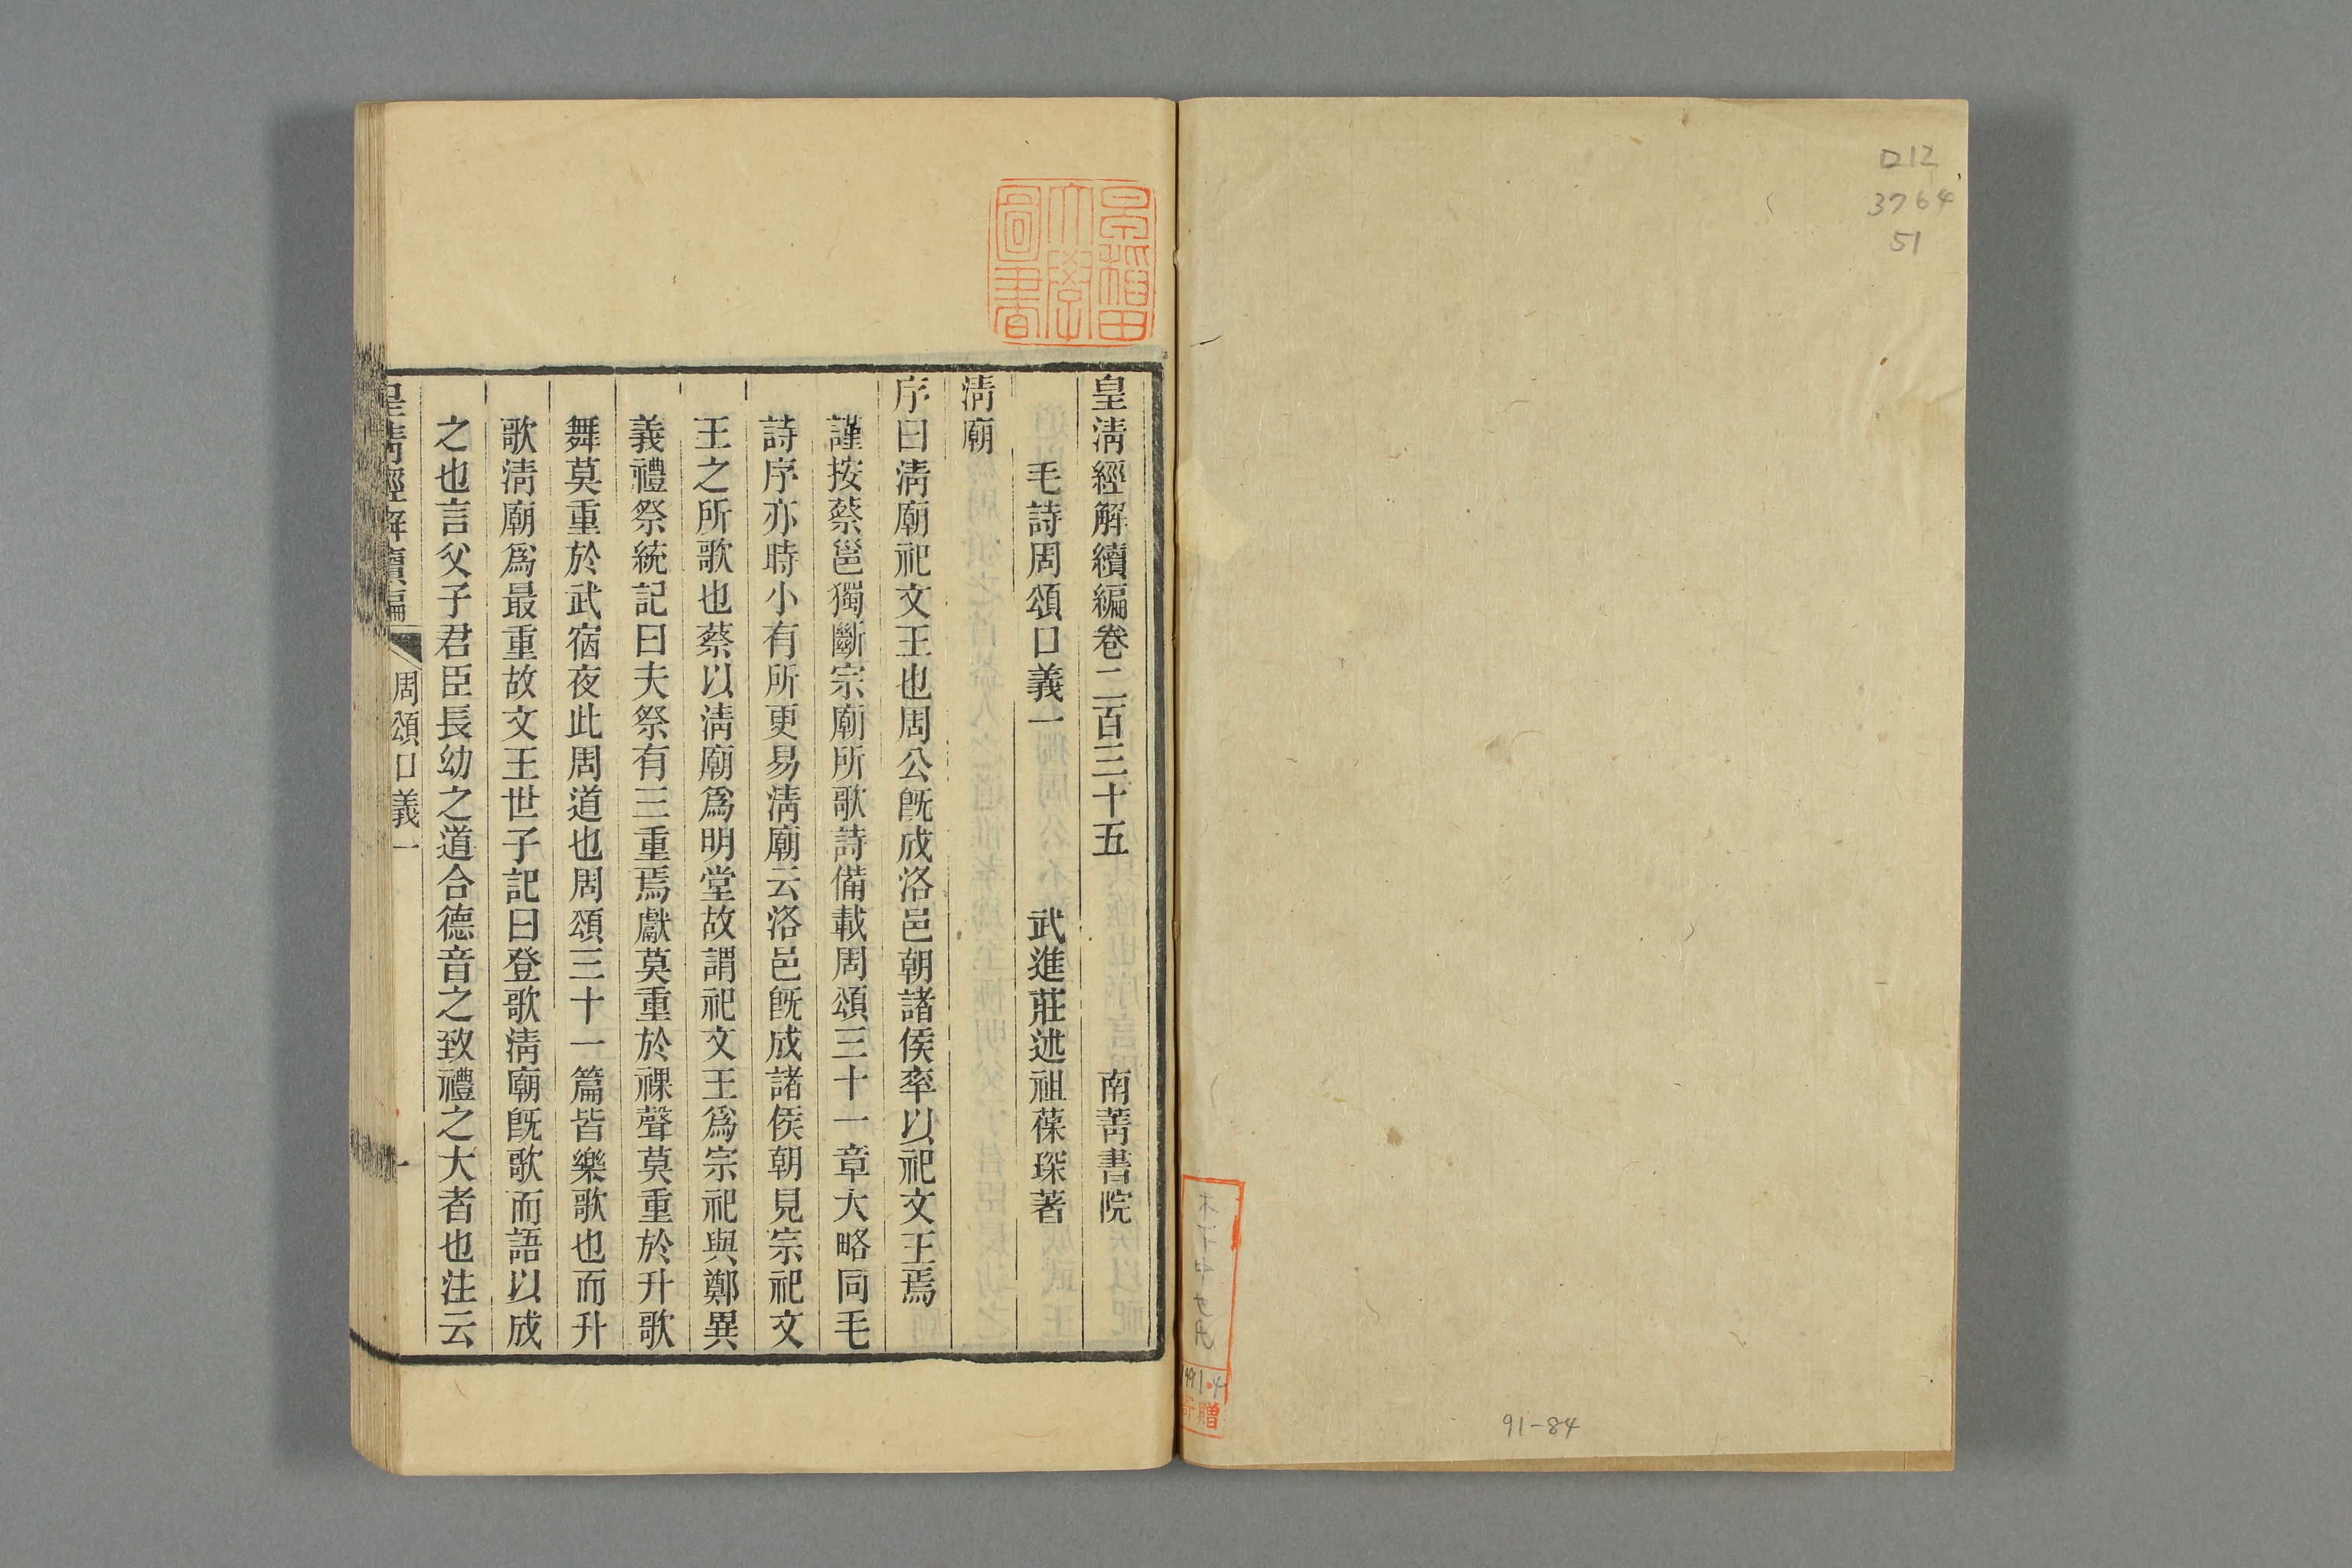 口12
3764
51
1991.4
寄贈
91-84
早稲田
大學
圖書
皇淸經解續編卷二百三十五 南菁書院
毛詩周頌口義一 武進莊述祖葆琛著
淸廟
序曰淸廟祀文王也周公旣成洛邑朝諸侯率以祀文王焉
謹按蔡邕獨斷宗廟所歌詩備載周頌三十一章大略同毛
詩序亦時小有所更易淸廟云洛邑旣成諸侯朝見宗祀文
王之所歌也蔡以淸廟爲明堂故謂祀文王爲宗祀與鄭異
義禮祭統記曰夫祭有三重焉獻莫重於祼聲莫重於升歌
舞莫重於武宿夜此周道也周頌三十一篇皆樂歌也而升
歌淸廟爲最重故文王世子記曰登歌淸廟旣歌而語以成
之也言父子君臣長幼之道合德音之致禮之大者也注云
皇淸經解續編 周頌口義一 一